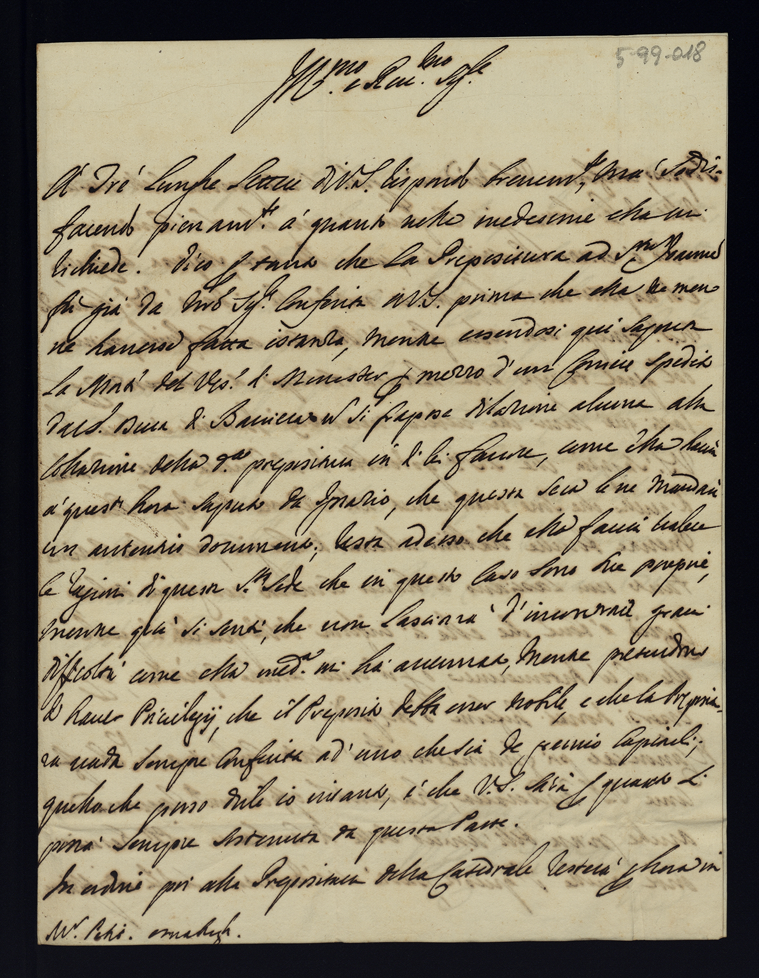 5-99-018
Ill.mo e Rev.mo Sig.re
A' Trè lunghe lettere di V.S. rispondo brevem.te, ma sodis-
facendo pienam.te à quanto nelle medesime ella mi
richiede. Dico per tanto che la Prepositura ad S.
fù già da Nro Sig.re conferita à V.S. prima che ella ne men
ne havesse fatta istanza, mentre essendosi quì saputa
la Morte del Vesc. di Munster per mezzo d'un Corriere spedito
dal S. Duca di Baviera non si frapose dilazione alcuna alla
Collazione della d.a prepositura in di lei favore, come ella havrà
à quest'hora saputo da Ignazio, che questa sera le ne manderà
un autentico documento; resta adesso che ella facci valere
le ragioni di questa S.ta Sede che in questo caso sono sue proprie,
mentre già si sente, che non lascierà d'incontrare gravi
difficoltà come ella med.a mi hà accennato, mentre pretendono
di haver Privilegij, che il Preposito debba esser nobile, e che la Preposi-
ra vada sempre conferita ad uno che sia de gremio Capituli;
quello che posso dirle io intanto, è che V.S. sarà per quanto si
potrà sempre sostenuta da questa Parte.
In ordine poi alla Prepositura della Catedrale resterà per hora in